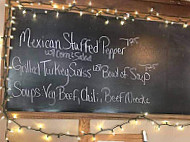 Mexican Stuffed Pepper 7.95
w/ Corn & Salad
Grilled Turkey Swiss Bowl of Soup 7.95
Soups Veg Beef, Chili, Beef